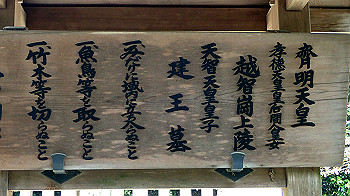 齊明天皇
孝徳天皇皇后間人皇女
越智崗上陵
天智天皇皇子
建王墓
一みだりに域内に立入らぬこと
一魚鳥等を取らぬこと
一竹木等を切らぬこと